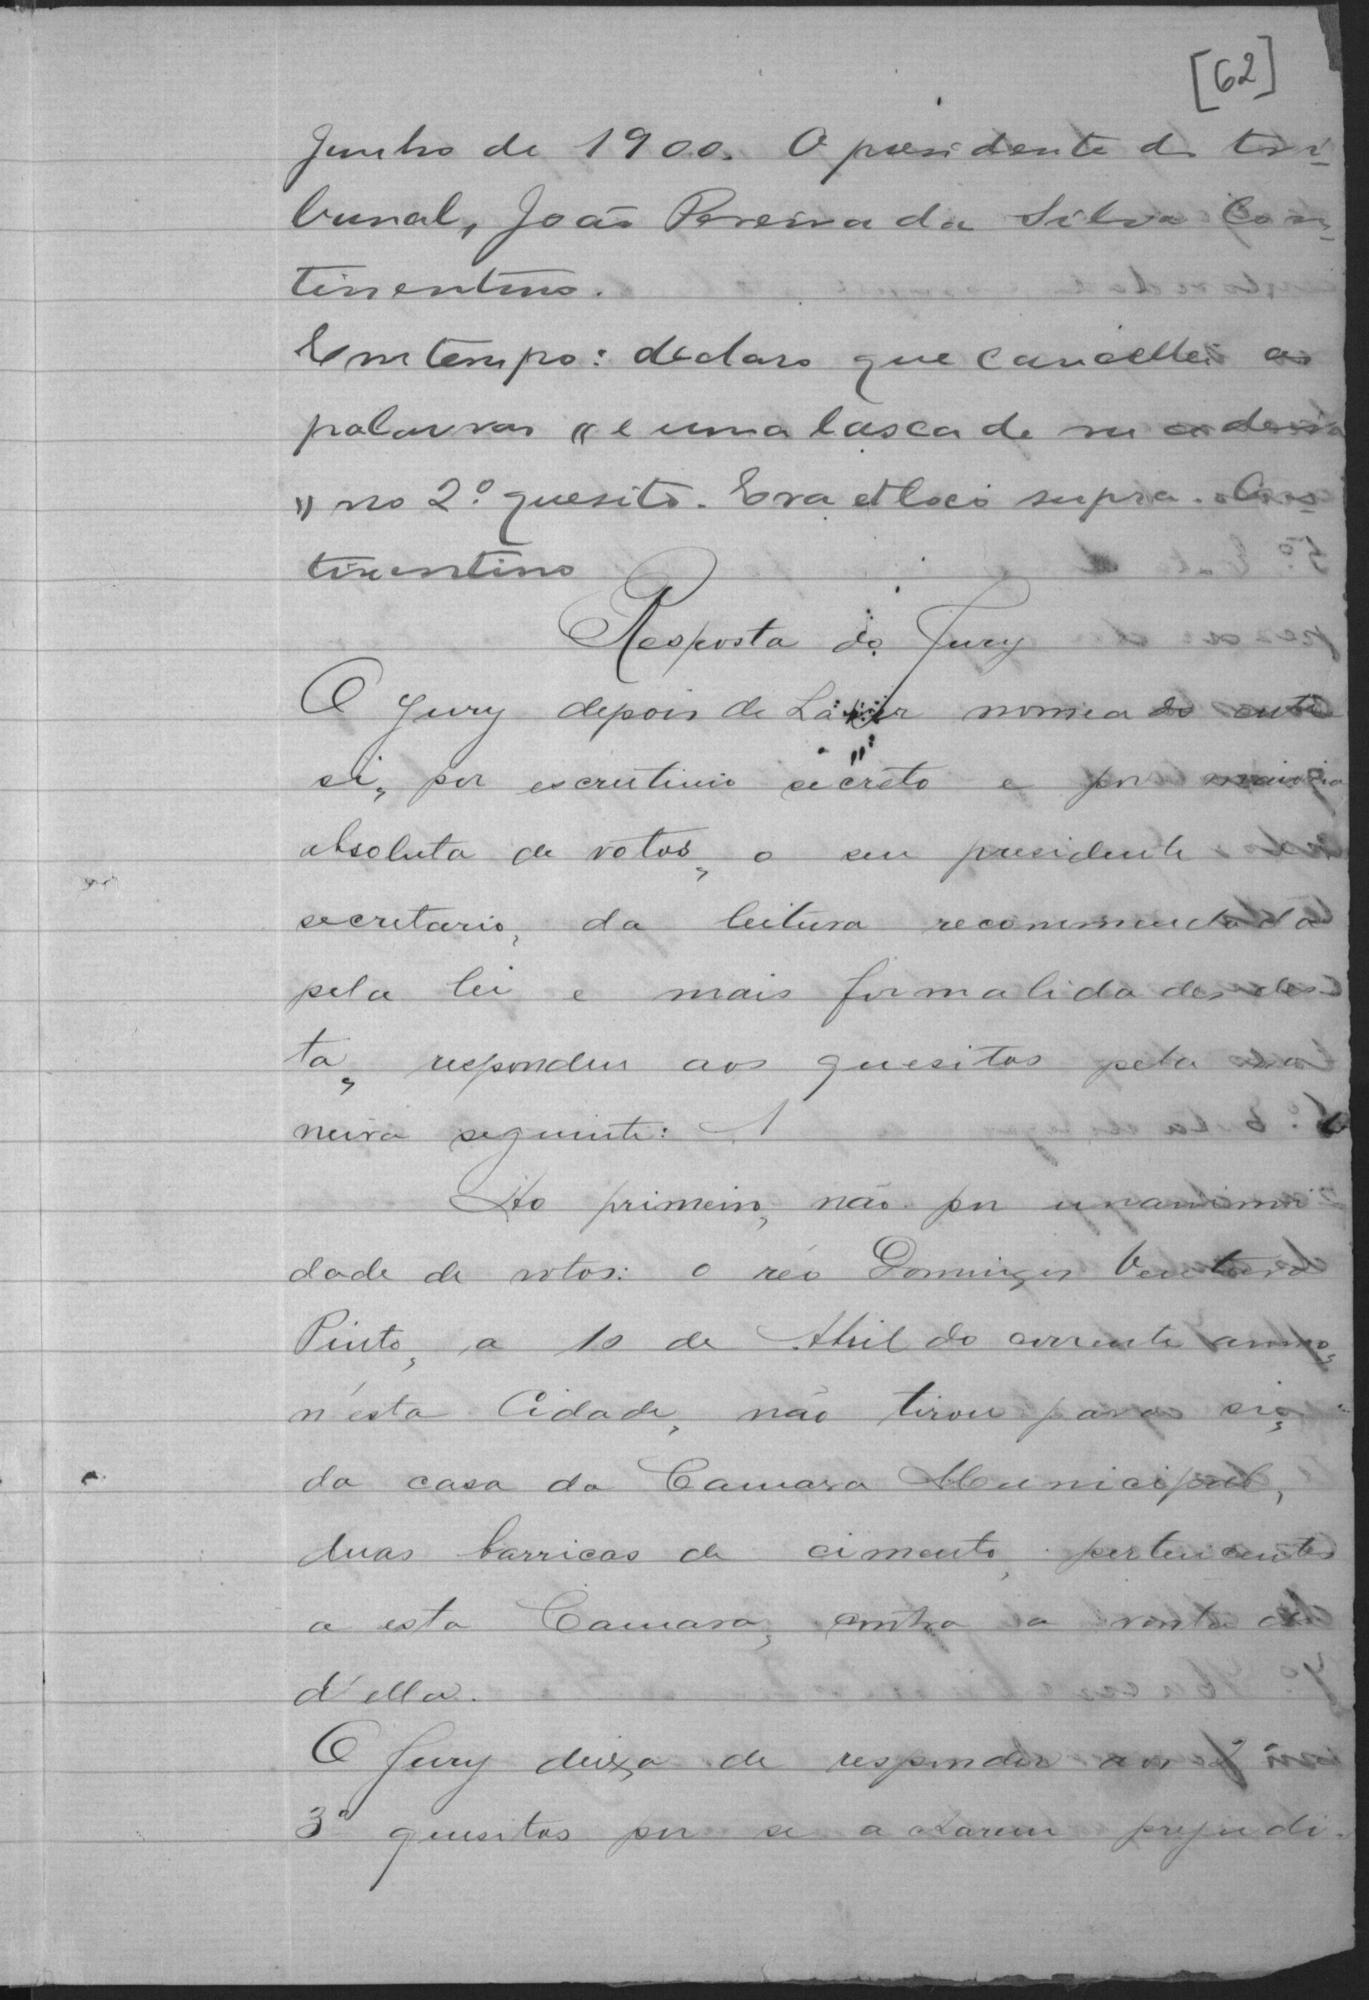 [62]
Junho de 1900. O presidente do tri-
bunal, João Pereira da Silva Con-
tinentino.
Em tempo: declaro que cancellei as
palavras "e uma lasca de madeira
" no 2º quesito. Era et loco supra. Con-
tinentino
Resposta do Jury
O Jury depois de haver nomeado entre
si, por escrutinio secreto e por maioria
absoluta de votos, o seu presidente
secretario, da leitura recommendada
pela lei e mais formalidades des-
ta, respondeu aos quesitos pela ma
neira seguinte:
Ao primeiro, não por unanimi
dade de votos: o réo Domingos Ventura
Pinto, a 10 de Abril do corrente anno,
n'esta Cidade, não tirou para si,
da casa da Camara Municipal,
duas barricas de cimento, pertencentes
a esta Camara, contra a vontade
d'ella.
O Jury deixa de responder aos 2º
3º quesitos por se acharem prejudi-